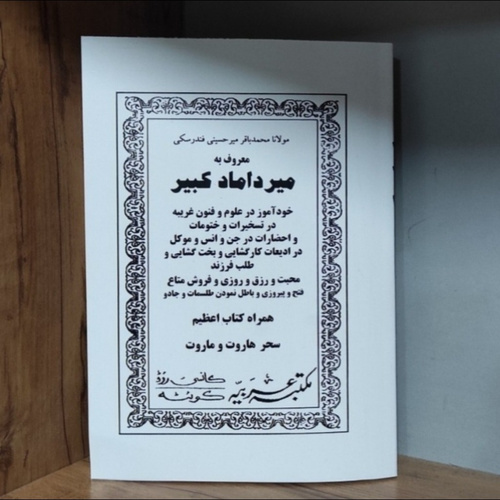 مولانا محمدباقر میرحسینی فندرسکی
معروف به
میرداماد کبیر
خودآموز در علوم و فنون غریبه
در تسخیرات و ختومات
و احضارات در جن و انس و موکل
در ادیعات کارگشایی و بخت گشایی و
طلب فرزند
محبت و رزق و روزی و فروش متاع
فتح و پیروزی و باطل نمودن طلسمات و جادو
همراه کتاب اعظیم
سحر هاروت و ماروت
مکتبہ عربیہ کانسی روڈ کوئٹہ